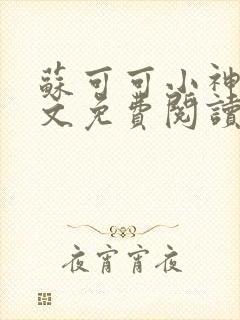 蘇可可小神
文免費閱讀
夜宵宵夜